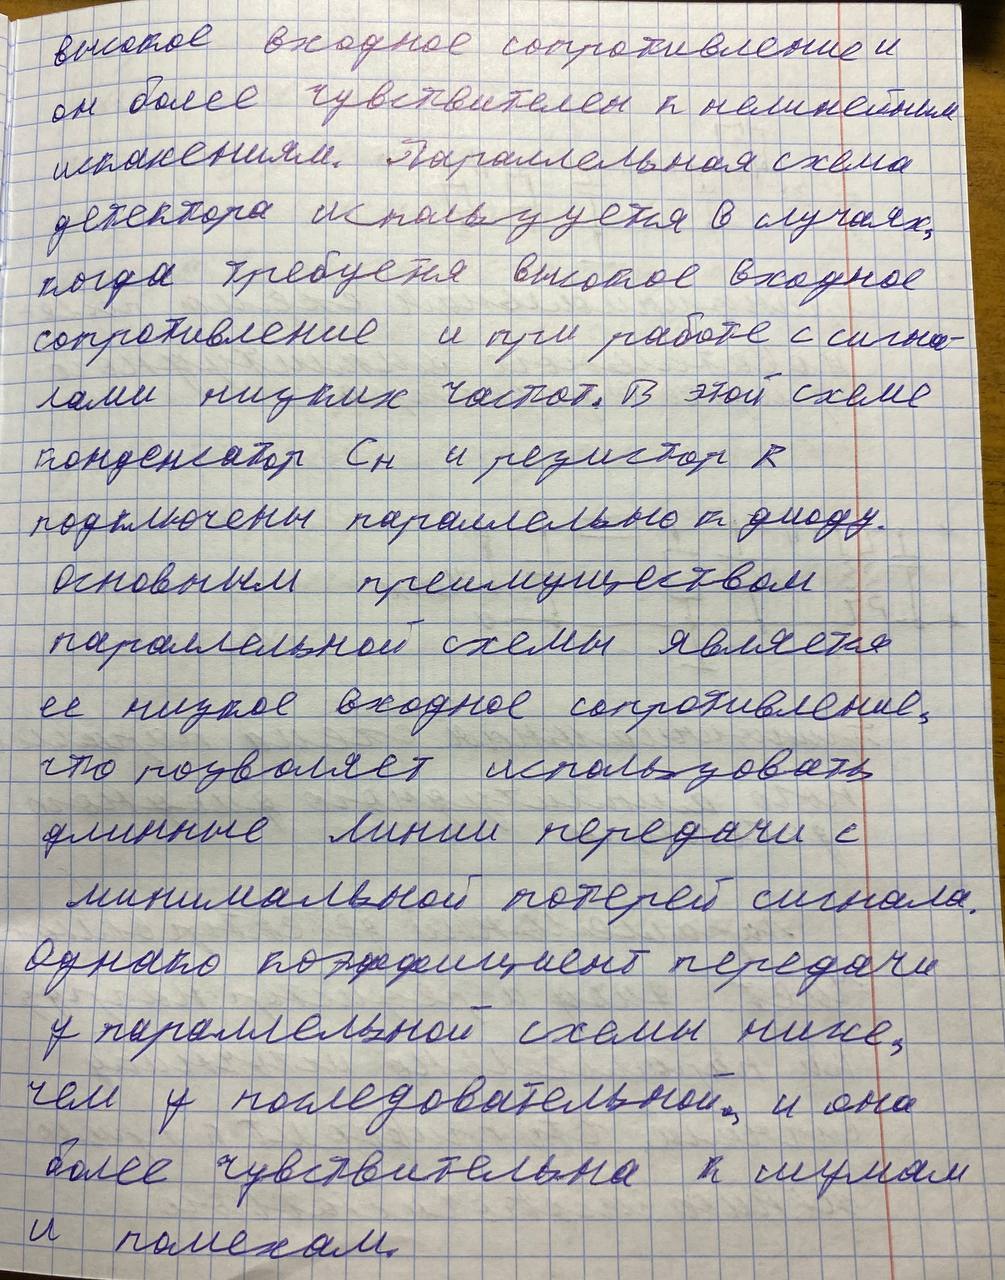 высокое входное сопротивление и
он более чувствителен к нелинейным
искажениям. Параллельная схема
детектора используется в случаях,
когда требуется высокое входное
сопротивление и при работе с сигна-
лами низких частот. В этой схеме
конденсатор Сн и резистор R
подключены параллельно к диоду.
Основным преимуществом
параллельной схемы является
ее низкое входное сопротивление,
что позволяет использовать
длинные линии передачи с
минимальной потерей сигнала.
Однако коэффициент передачи
у параллельной схемы ниже,
чем у последовательной, и она
более чувствительна к шумам
и помехам.